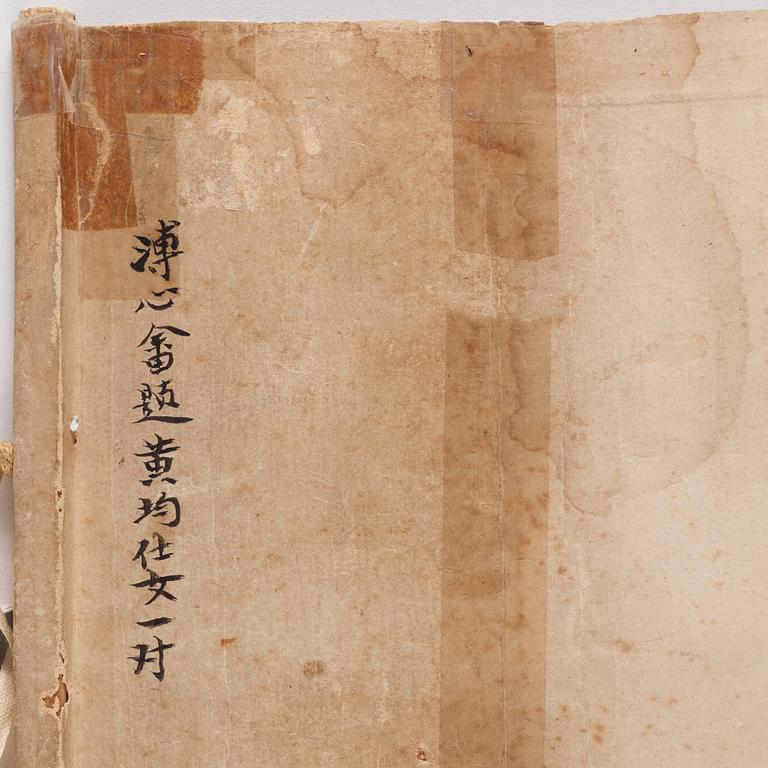 溥心畬題黄均仕女一对